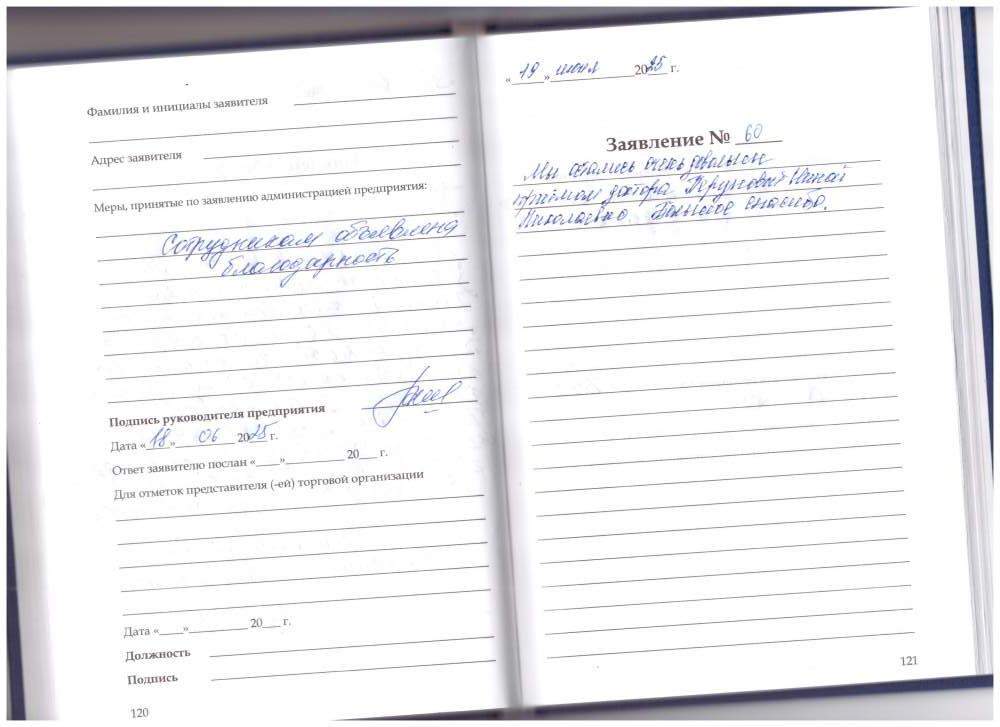 Фамилия и инициалы заявителя
Адрес заявителя
Меры, принятые по заявлению администрацией предприятия:
Сотрудникам объявлена
благодарность
Подпись руководителя предприятия
Дата «18» 06 2025 г.
Ответ заявителю послан «____»__________ 20___ г.
Для отметок представителя (-ей) торговой организации
Дата «____»__________ 20___ г.
Должность
Подпись
120
«19» июня 2025 г.
Заявление № 60
Мы остались очень довольны
приёмом доктора Ниной
Николаевно. Большое спасибо.
121